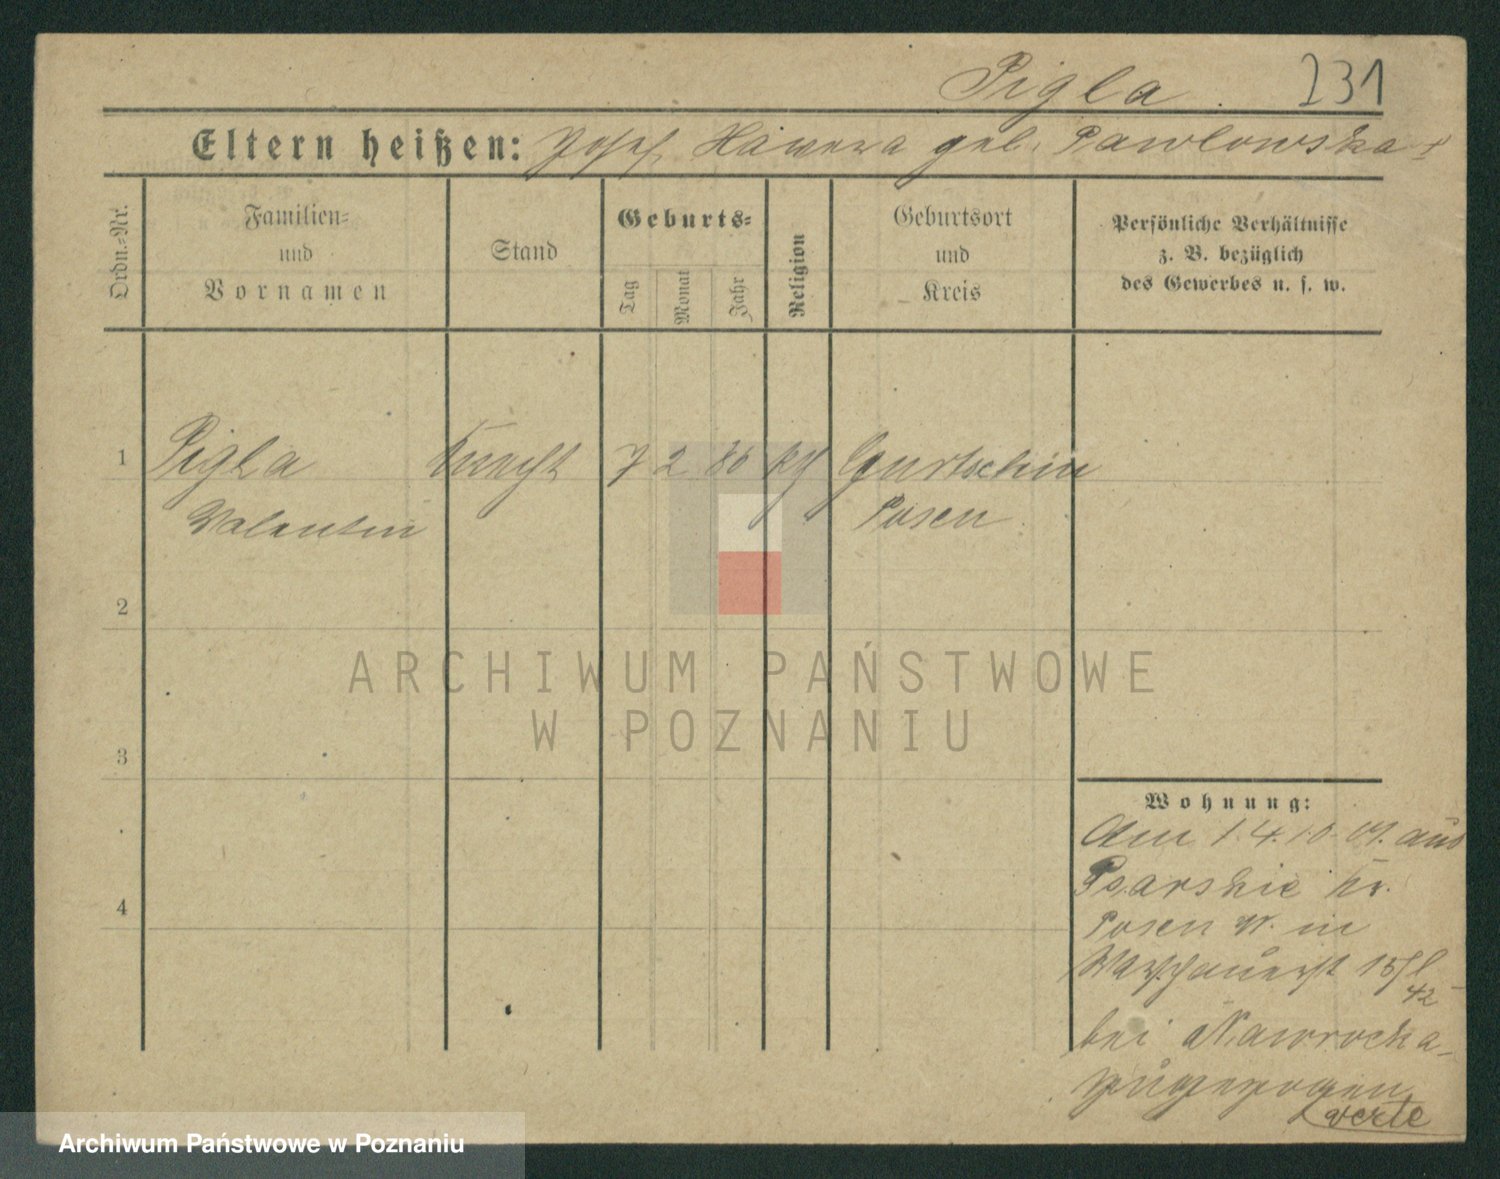 Pigla. 231
Eltern heißen: Josef Hawera geb. Pawlowska
Ordn.=Nr.
Familien=
und
Vornamen
Stand
Geburts=
Tag
Monat
Jahr
Religion
Geburtsort
und
Kreis
Persönliche Verhältnisse
z. B. bezüglich
des Gewerbes u. s. w.
1 Pigla Knecht 7 2 86 kth Gurtschin
Valentin Posen
2
3
4
ARCHIWUM PAŃSTWOWE
W POZNANIU
Wohnung:
Am 1.4.10 aus
Psarskie Kr.
Posen W. in
42
bei Nawrocka
zugezogen
verte
Archiwum Państwowe w Poznaniu